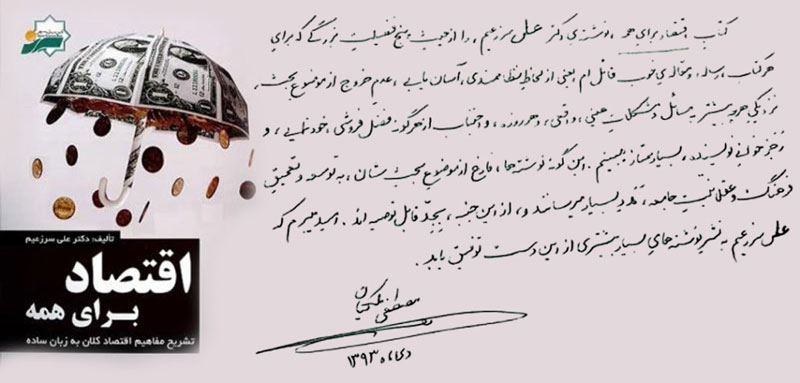 کتاب اقتصاد برای همه، نوشته‌ی دکتر علی سرزعیم، را از حیث پنج فضیلت بزرگی که برای
هر کتاب، رساله، و مقاله‌ی خوب قائل‌ام (یعنی از لحاظ نظام‌مندی، آسان‌یابی، عدم خروج از موضوع بحث،
نزدیکی هرچه بیشتر به مسائل و مشکلات عینی، واقعی، و هرروزه، و اجتناب از هرگونه فضل‌فروشی، خودنمایی، و
رجزخوانی نویسنده)، بسیار ممتاز می‌بینم. این گونه نوشته‌ها، فارغ از موضوع بحث‌شان، به توسعه و تعمیق
فرهنگ و عقلانیت جامعه، مدد بسیار میرسانند و، از این جنبه، بجدّ قابل توصیه‌اند. امید میبرم که
علی سرزعیم به نشر نوشته‌های بسیار بیشتری از این دست توفیق یابد.
مصطفی ملکیان
دی‌ماه ۱۳۹۳
تألیف: دکتر علی سرزعیم
اقتصاد
برای همه
تشریح مفاهیم اقتصاد کلان به زبان ساده